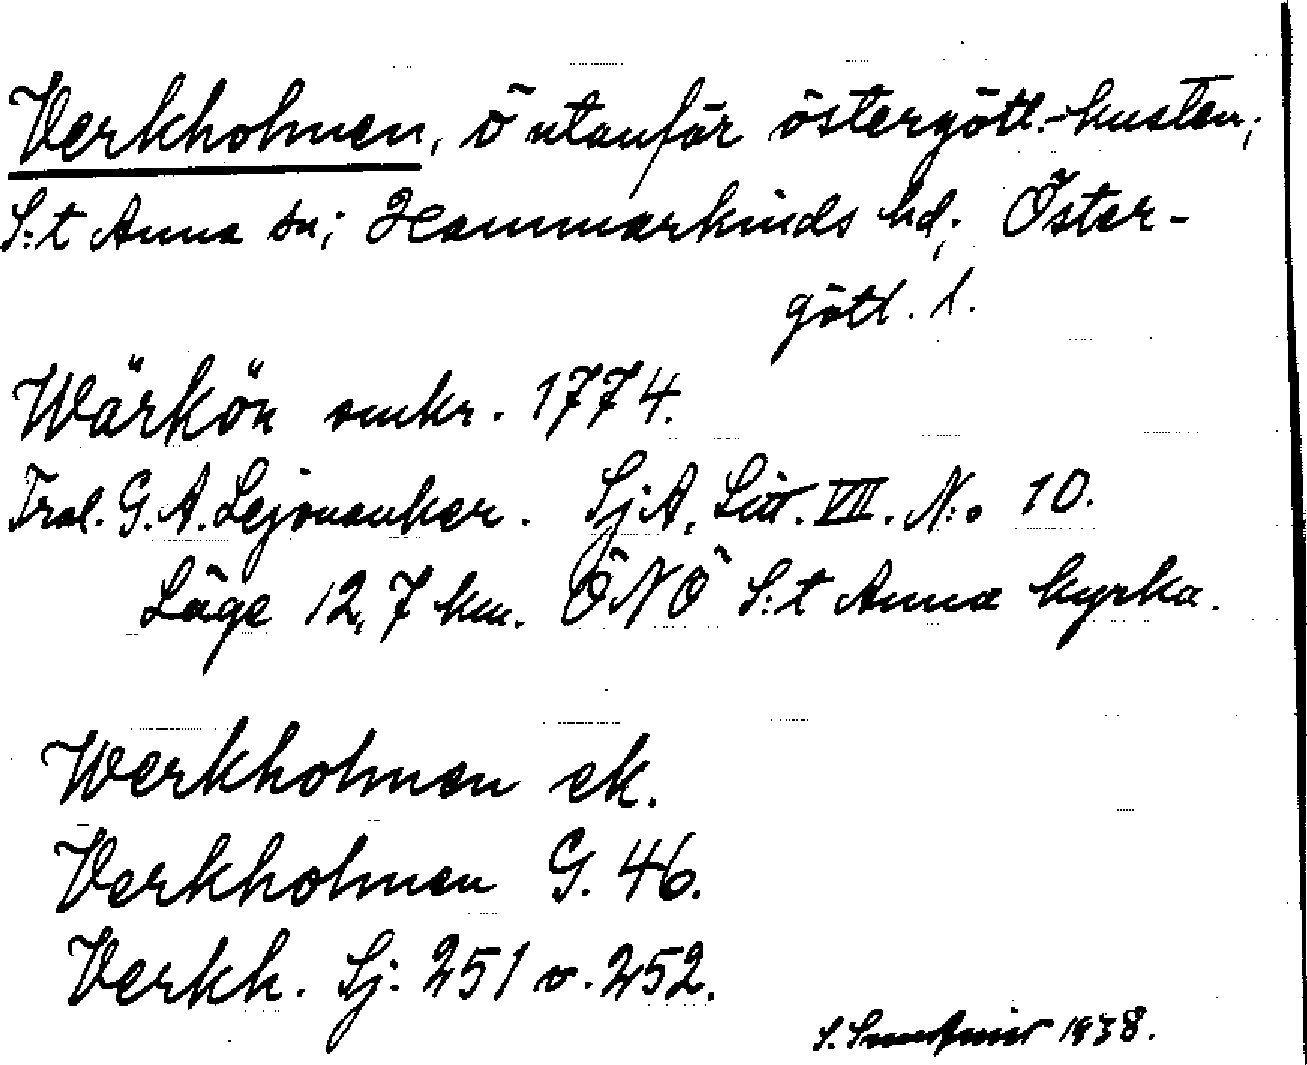 Verkholmen, ö utanför östergötl.-kusten;
S:t Anna sn; Hammarkinds hd; Öster-
götl. l.
Wärkön omkr. 1774.
Trol. G. A. Lejonanker. SjA, Litt. VII. N:o 10.
Läge 12,7 km. ÖNÖ S:t Anna kyrka.
Werkholmen ek.
Verkholmen G. 46.
Verkh. Sj: 251 o. 252.
S. 1938.